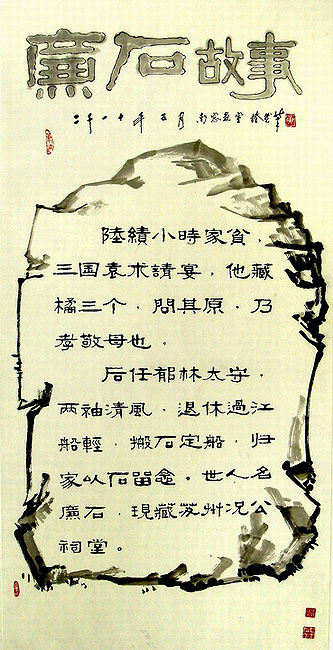 廉石故事
年 五月
陸績小時家貧，
三国袁术請宴，他藏
橘三个，問其原，乃
孝敬母也。
后任郁林太守，
两袖清風，退休過江
船輕，搬石定船，归
家以石留念。世人名
廉石，現藏苏州况公
祠堂。